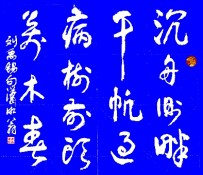 沉舟侧畔
千帆过
病树前头
万木春
刘禹锡句 潇湘翁